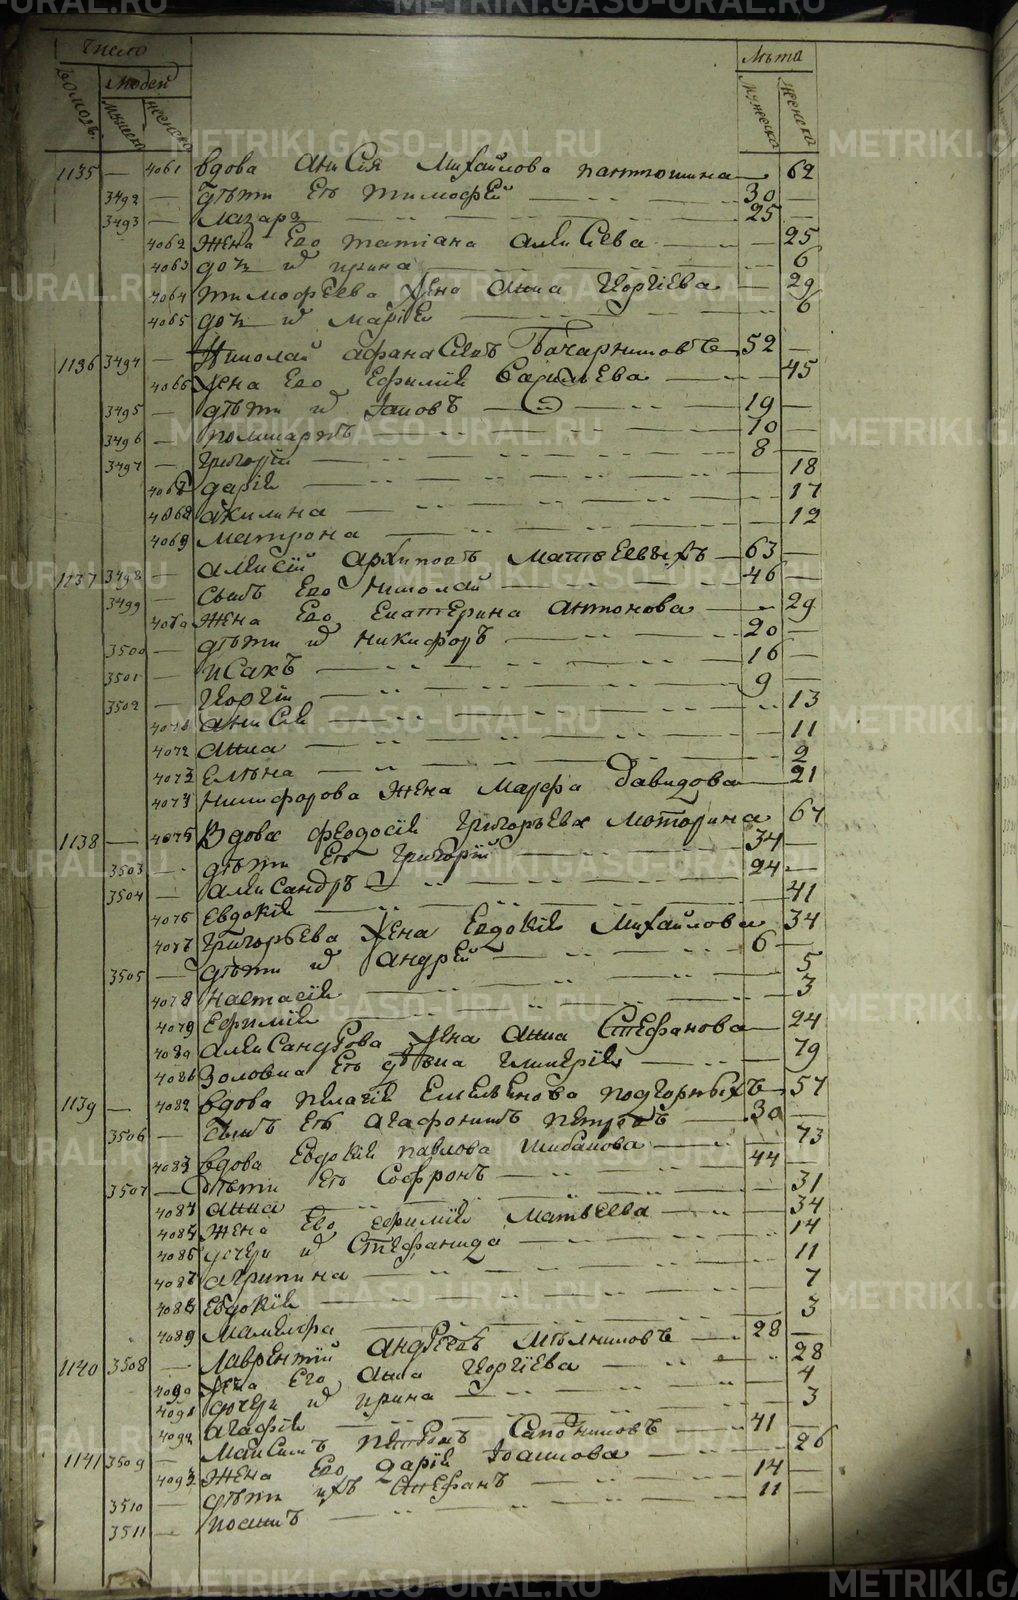 Число
Людей
Лѣта
домовъ
мужеска
женска
мужеска
женска
1135 — 4061 вдова анисія михайлова пантюшина — 62
3492 — дѣти Ея тимофѣй — 30 —
3493 — лазарь — 25 —
4062 жена Его татіана алексіева — 25
4063 дочь и ирина — 6
4064 тимофѣева жена анна георгіева — 29
4065 дочь и маріѧ — 6
1136 3494 — николай афанасіевъ Бочарниковъ — 52 —
4066 жена Его Ефиміѧ Васильева — 45
3495 — дѣти и Іаковъ — 19 —
3496 — поликарпъ — 10 —
3497 — григорій — 8 —
4067 даріѧ — 18
4068 акилина — 17
4069 матрона — 12
1137 3498 — алексій архиповъ матвеевыхъ — 63 —
3499 — сынъ Его николай — 46 —
4070 жена Его Екатерина антонова — 29
3500 — дѣти и никифоръ — 20 —
3501 — исакъ — 16 —
3502 — георгій — 9 —
4071 анисіѧ — 13
4072 анна — 11
4073 Елѣна — 2
4074 никифорова жена марфа давидова — 21
1138 — 4075 вдова феодосіѧ григорьева моторина — 67
3503 — дѣти Ея григорій — 34 —
3504 — александръ — 24 —
4076 Евдокіѧ — 41
4077 григорьева жена Евдокіѧ михайлова — 34
3505 — дѣти и андрѣй — 6 —
4078 настасіѧ — 5
4079 Ефиміѧ — 3
4080 александрова жена анна Стефанова — 24
4081 золовка Ея дѣвка гликеріѧ — 79
1139 — 4082 вдова пелагіѧ Емельянова подгорныхъ — 57
3506 — сынъ Ея агафоникъ петровъ — 30 —
4083 вдова Евдокіѧ павлова шибанова — 73
3507 — дѣти Ея Софронъ — 44 —
4084 анна — 31
4085 жена Его Ефиміѧ матвеева — 34
4086 дочери и Стефанида — 14
4087 агрипина — 11
4088 Евдокіѧ — 7
4089 мамелфа — 3
1140 3508 — лаврентій андрѣевъ мѣльниковъ — 28 —
4090 жена Его анна георгіева — 28
4091 дочери и ирина — 4
4092 агафіѧ — 3
1141 3509 — максимъ петровъ Сапожниковъ — 41 —
4093 жена Его даріѧ Іоаннова — 26
3510 — дѣти ихъ Стефанъ — 14 —
3511 — іоаннъ — 11 —
METRIKI.GASO-URAL.RU